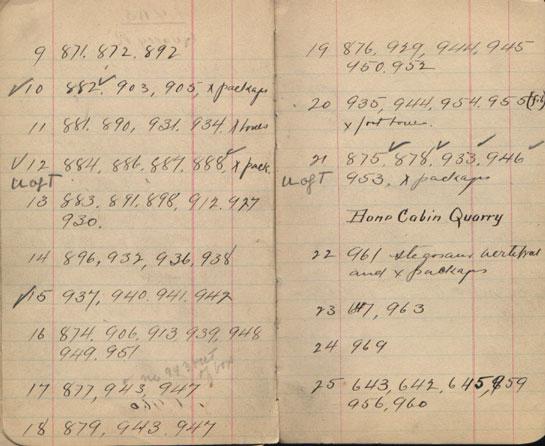 9 871. 872. 892
✓10 882✓. 903, 905, x packages
11 881. 890, 931. 934. x bones
✓12 884, 886, 887, 888✓, x pack.
U of T
13 883, 891, 898, 912, 927
930.
14 896, 932, 936, 938
✓15 937, 940. 941. 942
16 874. 906, 913, 939, 948
949. 951
17 877, 943, 947
18 879, 943. 947
19 876, 929, 944, 945
950. 952
20 935, 944, 954. 955
x foot bones.
21 875,✓ 878,✓ 933,✓ 946✓
U of T
953, x packages
Bone Cabin Quarry
22 961 stegosaur vertebrae
and x packages
23 963
24 969
25 643, 642, 645, 959
956, 960